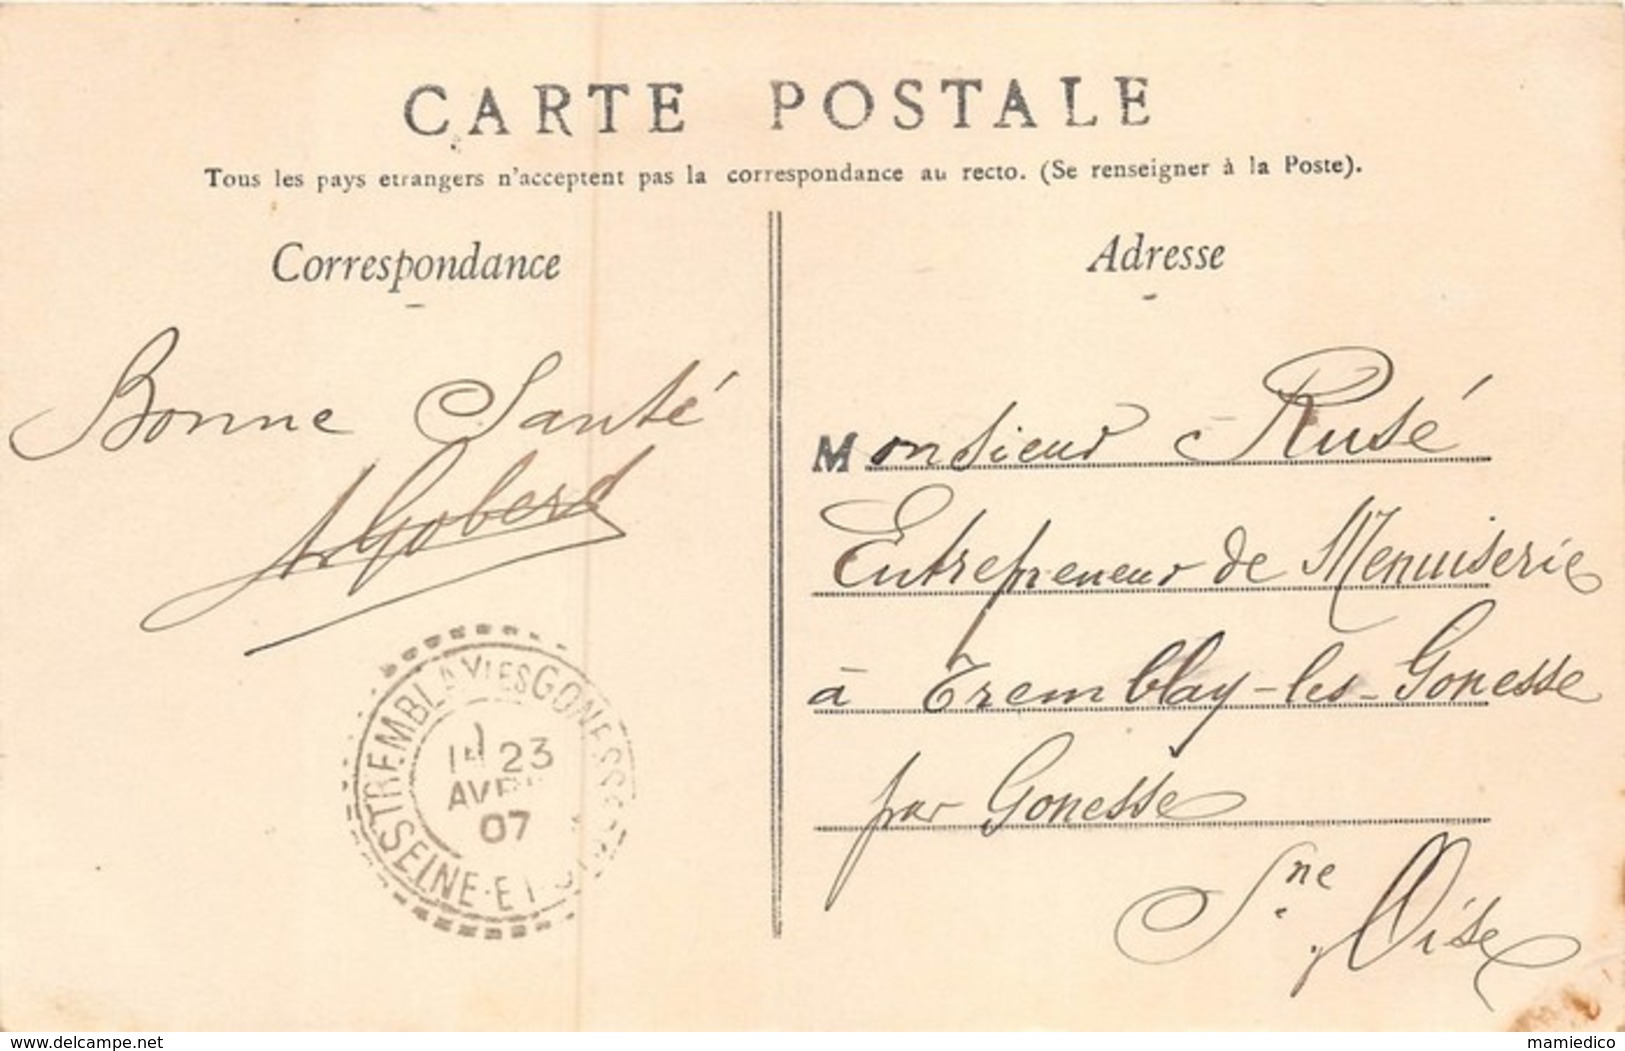 CARTE POSTALE
Tous les pays etrangers n'acceptent pas la correspondance au recto. (Se renseigner à la Poste).
Correspondance
Bonne Santé
A Gobert
TREMBLAY LES GONESSE
23
AVRIL
07
SEINE-ET-OISE
Adresse
Monsieur Rusé
Entrepreneur de Menuiserie
à Tremblay-les-Gonesse
par Gonesse
Sne Oise
www.delcampe.net
mamiedico